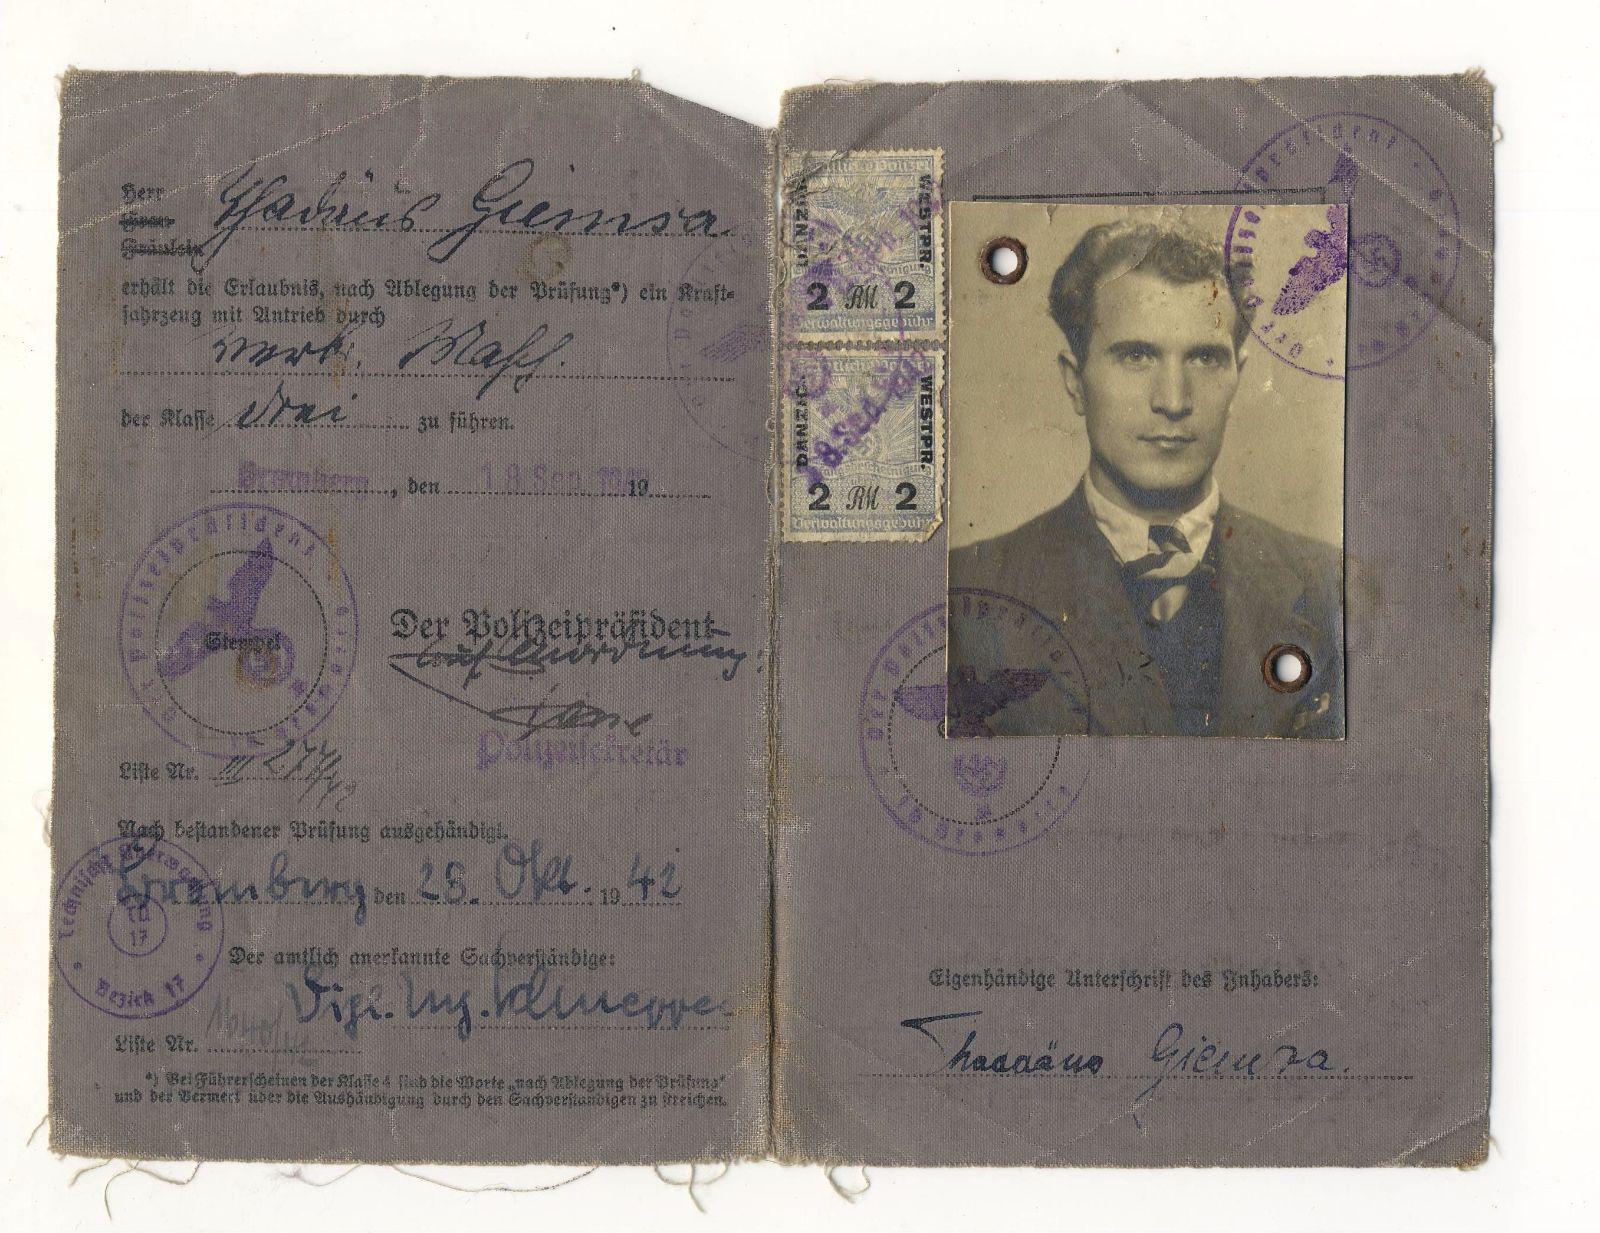 Herr
Frau
Fräulein
Thadäus Giemsa
erhält die Erlaubnis, nach Ablegung der Prüfung*) ein Kraft-
fahrzeug mit Antrieb durch
Verbr. Masch.
der Klasse drei zu führen.
Bromberg, den 18. Sep. 1942 19
Stempel
Der Polizeipräsident
Der Polizeipräsident
in Bromberg
auf Anordnung:
Polizeisekretär
Liste Nr. III 277/42
Nach bestandener Prüfung ausgehändigt.
Bromberg den 28. Okt. 1942
Technische Überwachung
TÜ
17
Bezirk 17
Der amtlich anerkannte Sachverständige:
Dipl. Ing.
Liste Nr.
*) Bei Führerscheinen der Klasse 4 sind die Worte „nach Ablegung der Prüfung“
und der Vermerk über die Aushändigung durch den Sachverständigen zu streichen.
DANZIG
WESTPR.
2 RM 2
Verwaltungsgebühr
DANZIG
WESTPR.
18. Sep. 1942
2 RM 2
Verwaltungsgebühr
Der Polizeipräsident
in Bromberg
Der Polizeipräsident
in Bromberg
Eigenhändige Unterschrift des Inhabers:
Thaddäus Giemsa.